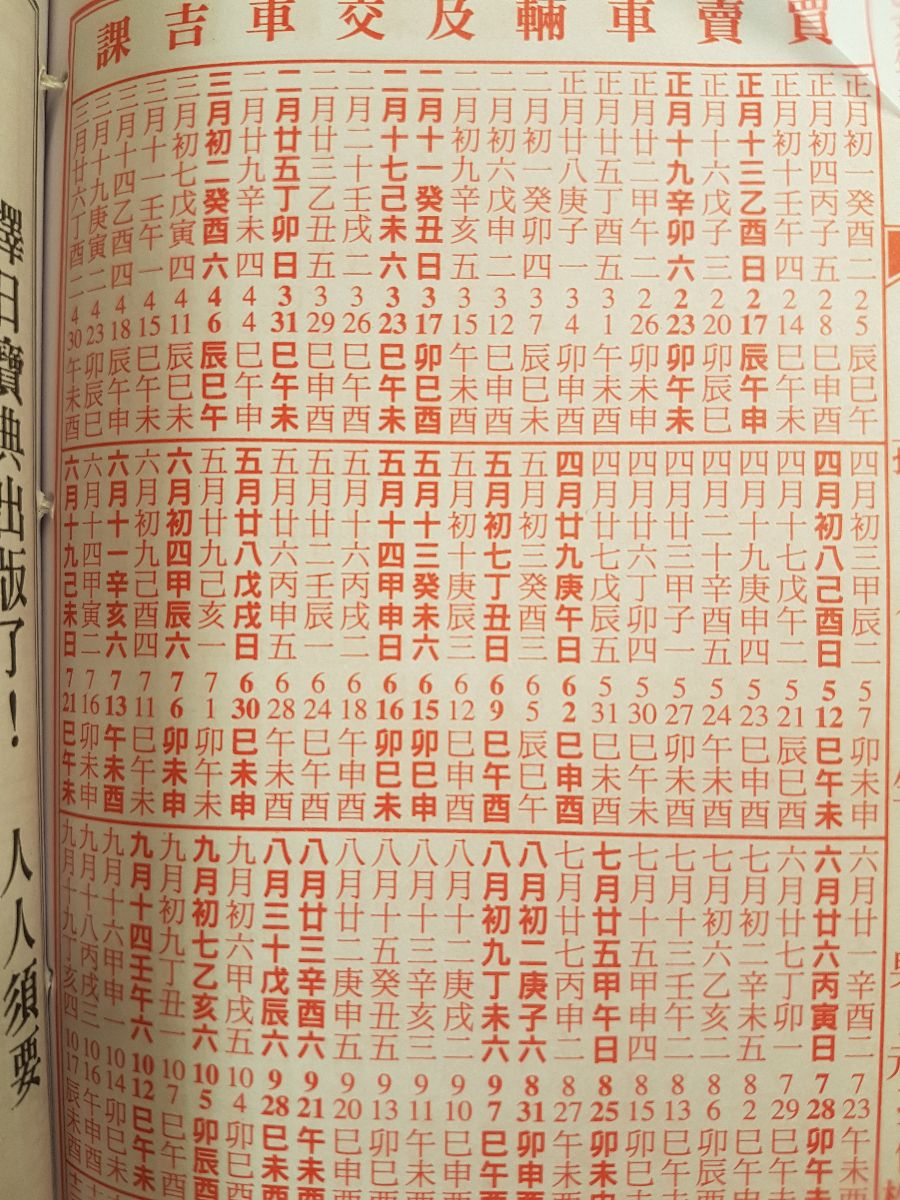 買賣車輛及交車吉課
正月初一癸酉二 2 5 辰巳午
正月初四丙子五 2 8 巳申酉
正月初十壬午四 2 14 巳午未
正月十三乙酉日 2 17 辰午申
正月十六戊子三 2 20 卯辰巳
正月十九辛卯六 2 23 卯午未
正月廿二甲午二 2 26 卯未申
正月廿五丁酉五 3 1 午未酉
正月廿八庚子一 3 4 卯申酉
二月初一癸卯四 3 7 辰巳未
二月初六戊申二 3 12 巳申酉
二月初九辛亥五 3 15 午未酉
二月十一癸丑日 3 17 卯巳酉
二月十七己未六 3 23 巳午未
二月二十壬戌二 3 26 巳午酉
二月廿三乙丑五 3 29 巳申酉
二月廿五丁卯日 3 31 巳午未
二月廿九辛未四 4 4 巳午申
三月初二癸酉六 4 6 辰巳午
三月初七戊寅四 4 11 辰巳未
三月十一壬午一 4 15 巳午未
三月十四乙酉四 4 18 辰午申
三月十九庚寅二 4 23 卯辰巳
三月廿六丁酉二 4 30 午未酉
四月初三甲辰二 5 7 卯未申
四月初八己酉日 5 12 巳午未
四月十七戊午二 5 21 辰巳酉
四月十九庚申四 5 23 巳申酉
四月二十辛酉五 5 24 午未酉
四月廿三甲子一 5 27 卯未酉
四月廿六丁卯四 5 30 巳午未
四月廿七戊辰五 5 31 巳未酉
四月廿九庚午日 6 2 巳申酉
五月初三癸酉三 6 5 辰巳午
五月初七丁丑日 6 9 巳午酉
五月初十庚辰三 6 12 巳申酉
五月十三癸未六 6 15 卯巳申
五月十四甲申日 6 16 卯巳未
五月十六丙戌二 6 18 午申酉
五月廿二壬辰一 6 24 巳午酉
五月廿六丙申五 6 28 午未酉
五月廿八戊戌日 6 30 巳未申
五月廿九己亥一 7 1 卯午未
六月初四甲辰六 7 6 卯未申
六月初九己酉四 7 11 巳午未
六月十一辛亥六 7 13 午未酉
六月十四甲寅二 7 16 卯未申
六月十九己未日 7 21 巳午未
六月廿一辛酉二 7 23 午未
六月廿六丙寅日 7 28 卯午
六月廿七丁卯一 7 29 巳午
七月初二辛未五 8 2 巳午
七月初六乙亥二 8 6 卯辰
七月十三壬午二 8 13 巳午
七月十五甲申四 8 15 卯巳
七月廿五甲午日 8 25 卯未
七月廿七丙申二 8 27 午未
八月初二庚子六 8 31 卯申
八月初九丁未六 9 7 巳午
八月十二庚戌二 9 10 巳申
八月十三辛亥三 9 11 午未
八月十五癸丑五 9 13 卯巳
八月廿二庚申五 9 20 巳申
八月廿三辛酉六 9 21 午未
八月三十戊辰六 9 28 巳未
九月初六甲戌五 10 4 卯巳
九月初七乙亥六 10 5 卯辰
九月初九丁丑一 10 7 巳午
九月十四壬午六 10 12 巳午未
九月十六甲申一 10 14 卯巳未
九月十八丙戌三 10 16 午申酉
九月十九丁亥四 10 17 辰未酉
擇日寶典出版了！人人須要